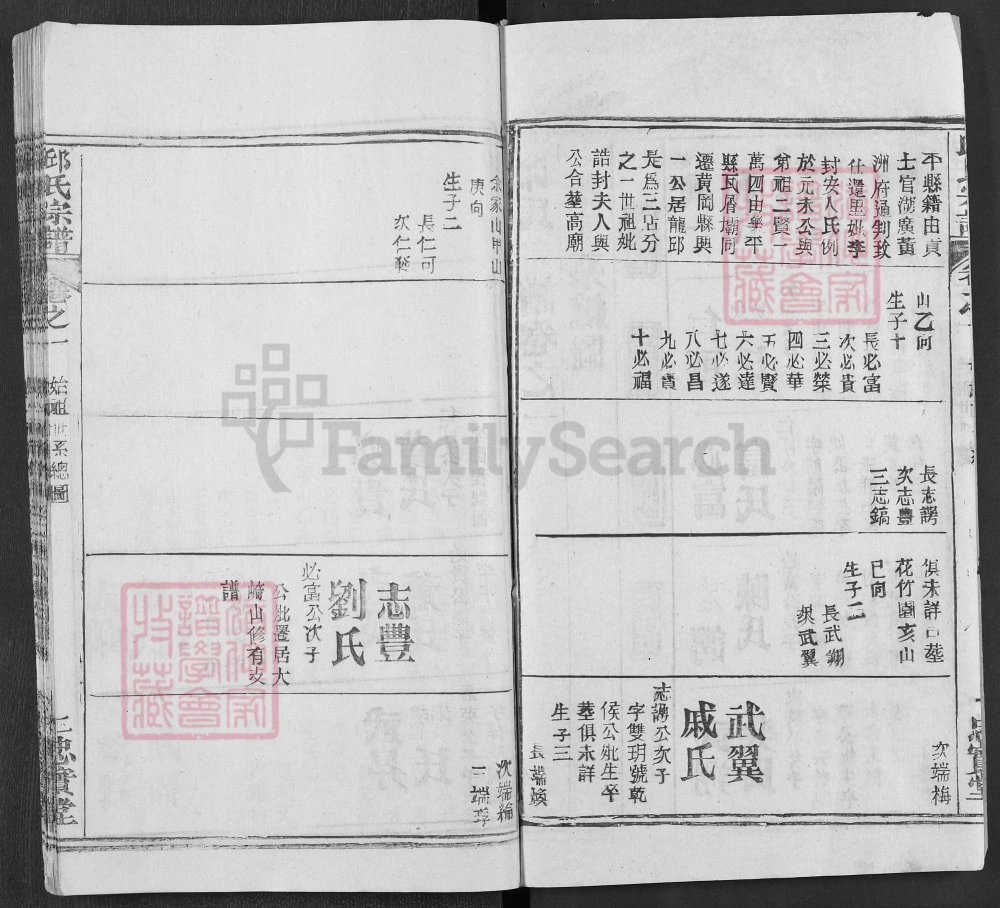 平縣籍由貢
士官湖廣黃
洲府通判致
仕還里妣李
封安人氏例
於元末公與
弟祖二賢一
萬四由樂平
縣瓦屑壩同
遷黃岡縣興
一公居龍邱
是為三店分
之一世祖妣
誥封夫人與
公合葬高廟
山乙向
生子十
長必富
次必貴
三必榮
四必華
五必賢
六必達
七必遂
八必昌
九必
十必福
長志諤
次志豐
三志鎬
俱未詳合葬
花竹園亥山
巳向
生子二
長武翊
次武翼
武翼
戚氏
志諤公次子
字雙玥號乾
侯公妣生卒
葬俱未詳
生子三
長端
次端梅
邱氏宗譜
卷之一
始祖世系總圖
忠實堂
余家山甲山
庚向
生子二
長仁可
次仁
志豐
劉氏
必富公次子
公妣遷居大
崎山修有支
譜
次端綸
三端孚
FamilySearch